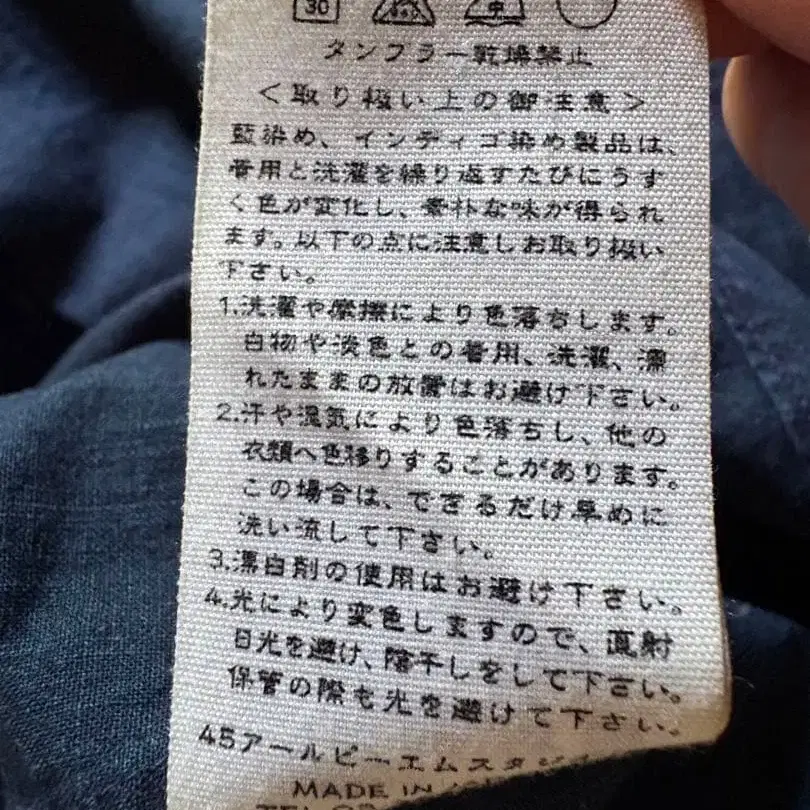 30
中
タンブラー乾燥禁止
<取り扱い上の御注意>
藍染め、インディゴ染め製品は、
着用と洗濯を繰り返すたびにうす
く色が変化し、素朴な味が得られ
ます。以下の点に注意しお取り扱い
下さい。
1.洗濯や摩擦により色落ちします。
白物や淡色との着用、洗濯、濡
れたままの放置はお避け下さい。
2.汗や湿気により色落ちし、他の
衣類へ色移りすることがあります。
この場合は、できるだけ早めに
洗い流して下さい。
3.漂白剤の使用はお避け下さい。
4.光により変色しますので、直射
日光を避け、陰干しをして下さい。
保管の際も光を避けて下さい。
45アールピーエムスタジオ
MADE IN